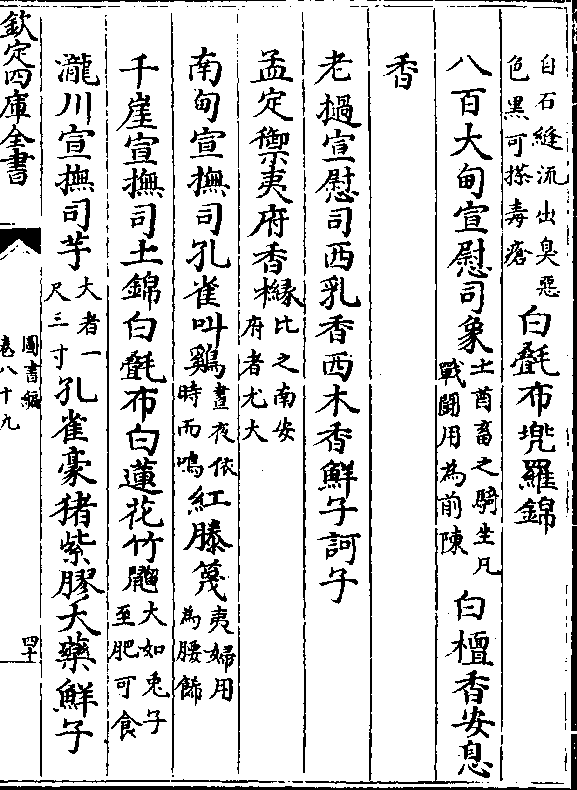 自石縫流出臭惡
色黑可搽毒瘡
白㲲布兠羅錦
八百大甸宣慰司象
土酋畜之騎坐凡
戰鬪用為前陳
白檀香安息
香
老撾宣慰司西乳香西木香鮮子訶子
孟定禦夷府香櫞
比之南安
府者尤大
南甸宣撫司孔雀叫鷄
晝夜依
時而鳴
紅藤篾
夷婦用
為腰飾
千崖宣撫司土錦白㲲布白蓮花竹䶉
大如兎子
至肥可食
瀧川宣撫司芋
大者一
尺三寸
孔雀豪猪紫膠大藥鮮子
欽定四庫全書
圖書編
卷八十九
四十